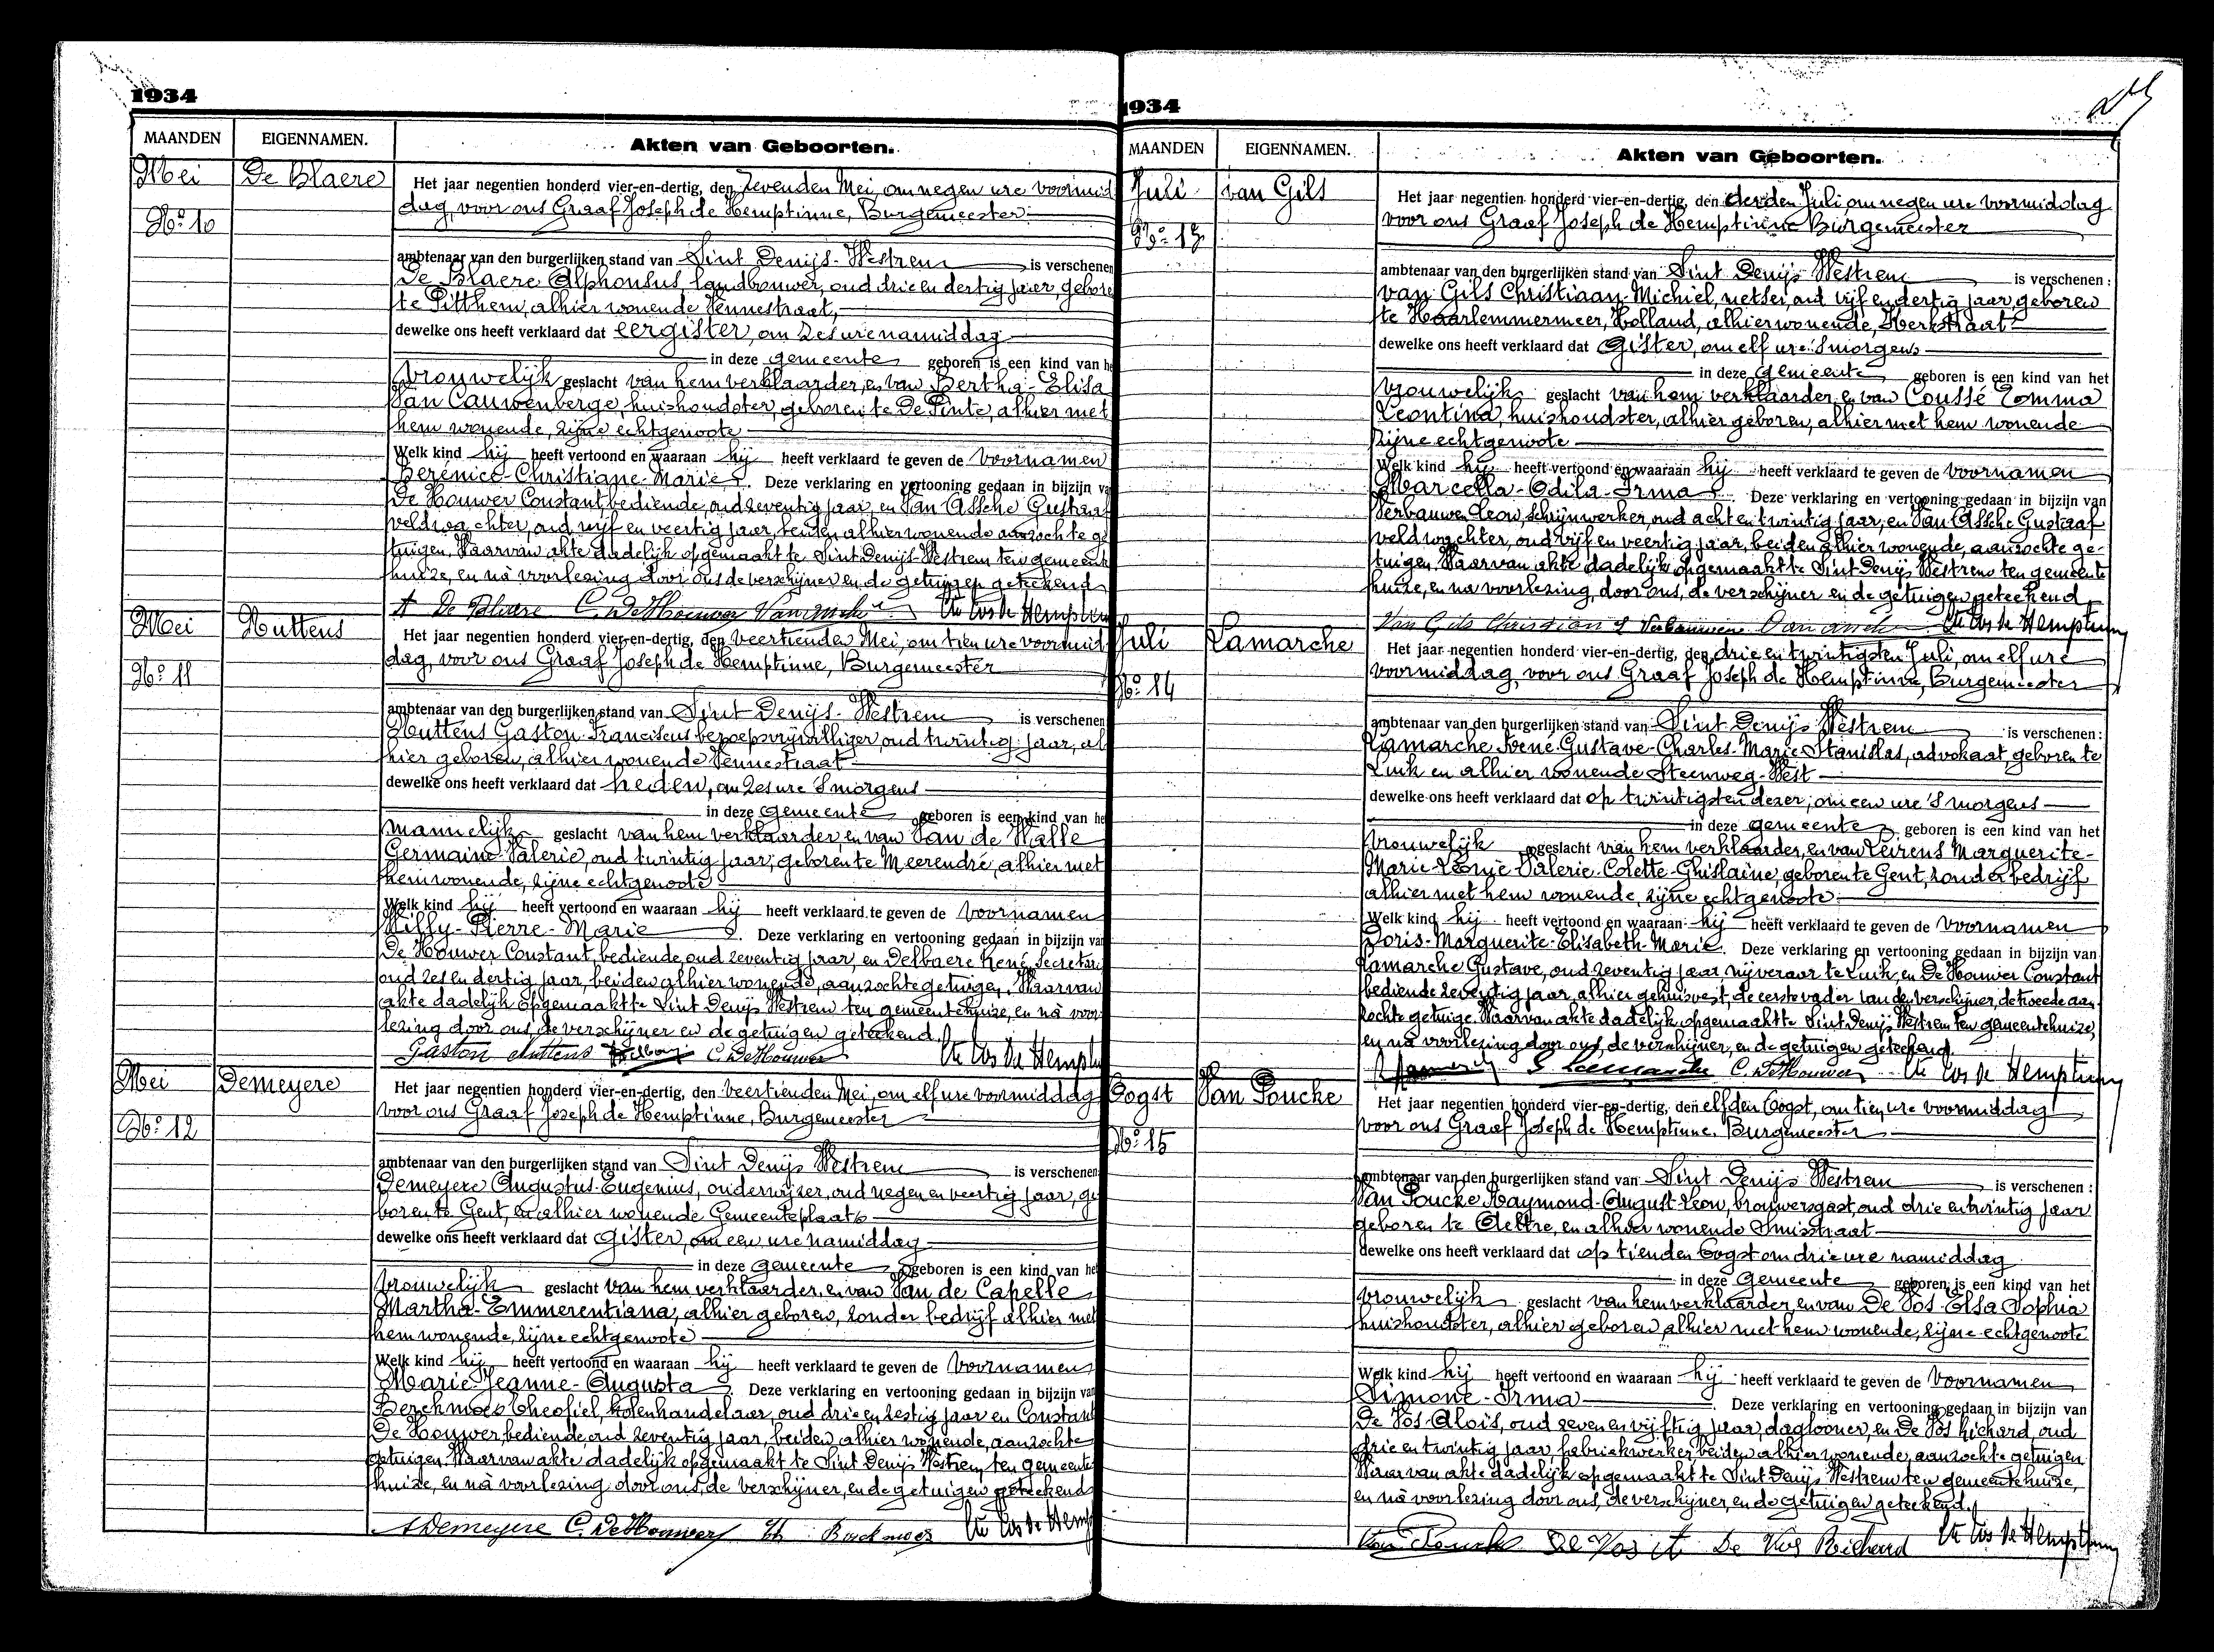 1934
MAANDEN EIGENNAMEN. Akten van Geboorten.
Mei De Blaere
No 10
Het jaar negentien honderd vier-en-dertig, den zevenden Mei, om negen ure voormid
dag, voor ons Graaf Joseph de Hemptinne, Burgemeester
ambtenaar van den burgerlijken stand van Sint Denijs-Westrem is verschenen
De Blaere Alphonsus, landbouwer, oud drie en dertig jaar, gebore
te Pitthem, alhier wonende Vennestraat,
dewelke ons heeft verklaard dat eergister, om zes ure namiddag
in deze gemeente geboren is een kind van he
vrouwelijk geslacht van hem verklaarder, en van Bertha-Elisa
Van Cauwenberge, huishoudster, geboren te De Pinte, alhier met
hem wonende, zijne echtgenoote
Welk kind hij heeft vertoond en waaraan hij heeft verklaard te geven de voornamen
Berénice-Christiane-Marie. Deze verklaring en vertooning gedaan in bijzijn va
De Houwer Constant, bediende, oud zeventig jaar, en Van Assche Gustaaf
veldwachter, oud vijf en veertig jaar, beiden alhier wonende aanzochte ge
tuigen. Waarvan akte dadelijk opgemaakt te Sint Denijs-Westrem ten gemeente
huize, en nà voorlezing door ons de verschijner en de getuigen geteekend
A De Blaere C. De Houwer Van Assche Cte Jos de Hemptinne
Mei Huttens
No 11
Het jaar negentien honderd vier-en-dertig, den veertienden Mei, om tien ure voormid
dag, voor ons Graaf Joseph de Hemptinne, Burgemeester
ambtenaar van den burgerlijken stand van Sint Denijs-Westrem is verschenen
Huttens Gaston-Franciscus beroepsvrijwilliger, oud twintig jaar, al
hier geboren, alhier wonende Vennestraat
dewelke ons heeft verklaard dat heden, om zes ure 's morgens
in deze gemeente geboren is een kind van he
mannelijk geslacht van hem verklaarder, en van Van de Walle
Germaine-Valerie, oud twintig jaar, geboren te Meerendré, alhier met
hem wonende, zijne echtgenoote
Welk kind hij heeft vertoond en waaraan hij heeft verklaard te geven de voornamen
Willy-Pierre-Marie. Deze verklaring en vertooning gedaan in bijzijn van
De Houwer Constant, bediende, oud zeventig jaar, en Delbaere René, secretari
oud zes en dertig jaar, beiden alhier wonende, aanzochte getuigen. Waarvan
akte dadelijk opgemaakt te Sint Denijs Westrem ten gemeentehuize, en nà voor
lezing door ons, de verschijner en de getuigen geteekend.
Gaston Huttens C. De Houwer Cte Jos de Hemptinne
Mei Demeyere
No 12
Het jaar negentien honderd vier-en-dertig, den veertienden Mei, om elf ure voormiddag
voor ons Graaf Joseph de Hemptinne, Burgemeester
ambtenaar van den burgerlijken stand van Sint Denijs Westrem is verschenen
Demeyere Augustus-Eugenius, onderwijzer, oud negen en veertig jaar, ge
boren te Gent, en alhier wonende Gemeenteplaats
dewelke ons heeft verklaard dat gister, om een ure namiddag
in deze gemeente geboren is een kind van he
vrouwelijk geslacht van hem verklaarder, en van Van de Capelle
Martha-Emmerentiana, alhier geboren, zonder bedrijf alhier met
hem wonende, zijne echtgenoote
Welk kind hij heeft vertoond en waaraan hij heeft verklaard te geven de voornamen
Marie-Jeanne-Augusta. Deze verklaring en vertooning gedaan in bijzijn van
Berckmoes Theofiel, kolenhandelaar, oud drie en zestig jaar en Constant
De Houwer, bediende, oud zeventig jaar, beiden alhier wonende, aanzochte
getuigen. Waarvan akte dadelijk opgemaakt te Sint Denijs Westrem, ten gemeente
huize, en nà voorlezing door ons, de verschijner, en de getuigen geteekend
A Demeyere C. De Houwer Th Berckmoes Cte Jos de Hemp
1934
MAANDEN EIGENNAMEN. Akten van Geboorten.
Juli van Gils
No 13
Het jaar negentien honderd vier-en-dertig, den derden Juli om negen ure voormiddag
voor ons Graaf Joseph de Hemptinne Burgemeester
ambtenaar van den burgerlijken stand van Sint Denijs Westrem is verschenen :
van Gils Christiaan-Michiel, metser, oud vijf en dertig jaar, geboren
te Haarlemmermeer, Holland, alhier wonende, Kerkstraat
dewelke ons heeft verklaard dat gister, om elf ure 's morgens
in deze gemeente geboren is een kind van het
vrouwelijk geslacht van hem verklaarder en van Coussé Emma
Leontina, huishoudster, alhier geboren, alhier met hem wonende
zijne echtgenoote
Welk kind hij heeft vertoond en waaraan hij heeft verklaard te geven de voornamen
Marcella-Odila-Irma. Deze verklaring en vertooning gedaan in bijzijn van
Verbauwen Leon, schrijnwerker, oud acht en twintig jaar, en Van Assche Gustaaf
veldwachter, oud vijf en veertig jaar, beiden alhier wonende, aanzochte ge-
tuigen. Waarvan akte dadelijk opgemaakt te Sint Denijs Westrem ten gemeente
huize, en na voorlezing, door ons, de verschijner en de getuigen geteekend
Van Gils Christian Verbauwen Van Assche Cte Jos de Hemptinne
Juli Lamarche
No 14
Het jaar negentien honderd vier-en-dertig, den drie en twintigsten Juli, om elf ure
voormiddag, voor ons Graaf Joseph de Hemptinne, Burgemeester
ambtenaar van den burgerlijken stand van Sint Denijs Westrem is verschenen :
Lamarche René-Gustave-Charles-Marie-Stanislas, advokaat, geboren te
Luik en alhier wonende Steenweg-West
dewelke ons heeft verklaard dat op twintigsten dezer, om een ure 's morgens
in deze gemeente geboren is een kind van het
vrouwelijk geslacht van hem verklaarder, en van Leirens Marguerite-
Marie-Léonie-Valerie-Colette-Ghislaine, geboren te Gent, zonder bedrijf
alhier met hem wonende zijne echtgenoote
Welk kind hij heeft vertoond en waaraan hij heeft verklaard te geven de voornamen
Doris-Marguerite-Elisabeth-Marie. Deze verklaring en vertooning gedaan in bijzijn van
Lamarche Gustave, oud zeventig jaar nijveraar te Luik en De Houwer Constant
bediende zeventig jaar, alhier gehuisvest, de eerste vader van de verschijner, de tweede aan
zochte getuige. Waarvan akte dadelijk opgemaakt te Sint Denijs Westrem ten gemeentehuize,
en nà voorlezing door ons, de verschijner, en de getuigen geteekend.
C. De Houwer Cte Jos de Hemptinne
Oogst Van Poucke
No 15
Het jaar negentien honderd vier-en-dertig, den elfden Oogst, om tien ure voormiddag
voor ons Graaf Joseph de Hemptinne, Burgemeester
ambtenaar van den burgerlijken stand van Sint Denijs Westrem is verschenen :
Van Poucke Raymond-August-Leon, brouwersgast, oud drie en twintig jaar
geboren te Aeltre, en alhier wonende Smisstraat
dewelke ons heeft verklaard dat op tienden Oogst om drie ure namiddag
in deze gemeente geboren is een kind van het
vrouwelijk geslacht van hem verklaarder, en van De Vos-Elsa Sophia
huishoudster, alhier geboren, alhier met hem wonende, zijne echtgenoote
Welk kind hij heeft vertoond en waaraan hij heeft verklaard te geven de voornamen
Simone-Irma. Deze verklaring en vertooning gedaan in bijzijn van
De Vos-Aloïs, oud zeven en vijftig jaar, daglooner, en De Vos Richard, oud
drie en twintig jaar, fabriekwerker, beiden alhier wonende, aanzochte getuigen
Waarvan akte dadelijk opgemaakt te Sint Denijs Westrem ten gemeentehuize,
en nà voorlezing door ons, de verschijner, en de getuigen geteekend.
Van Poucke De Vos A De Vos Richard Cte Jos de Hemptinne